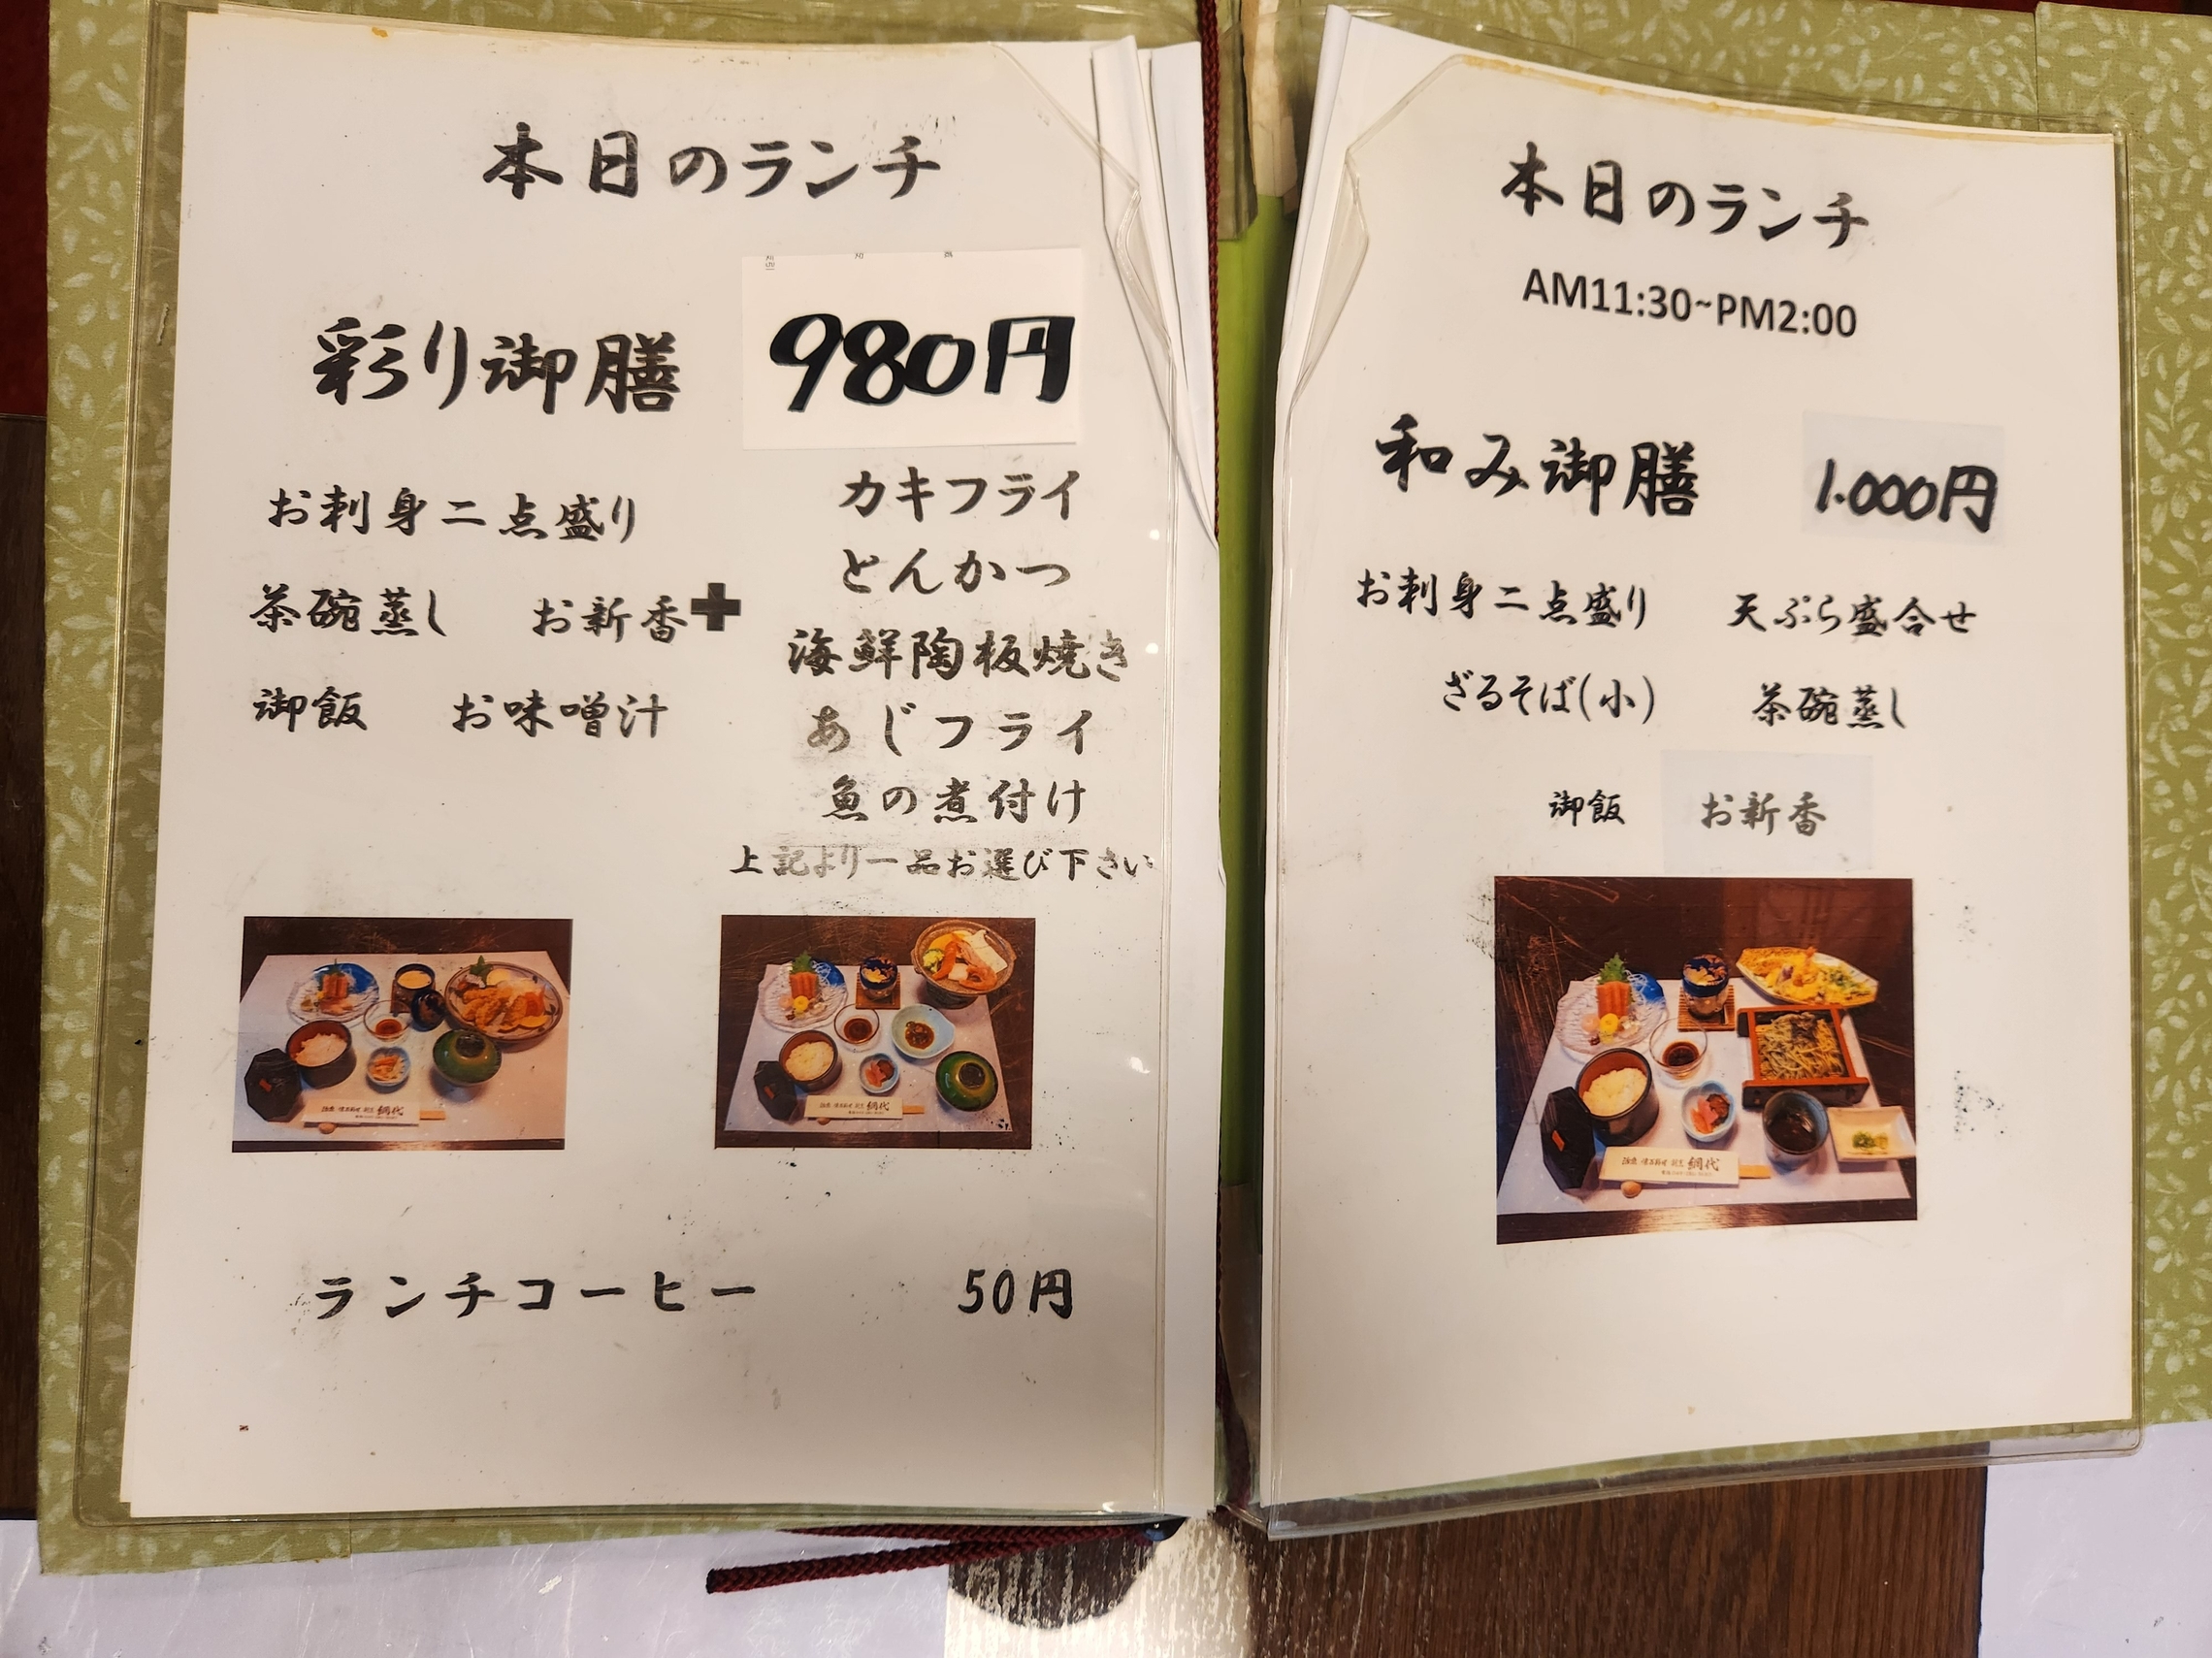 本日のランチ
彩り御膳 980円
お刺身二点盛り
茶碗蒸し お新香
御飯 お味噌汁
+
カキフライ
とんかつ
海鮮陶板焼き
あじフライ
魚の煮付け
上記より一品お選び下さい
網代
網代
ランチコーヒー 50円
本日のランチ
AM11:30~PM2:00
和み御膳 1.000円
お刺身二点盛り 天ぷら盛合せ
ざるそば(小) 茶碗蒸し
御飯 お新香
網代